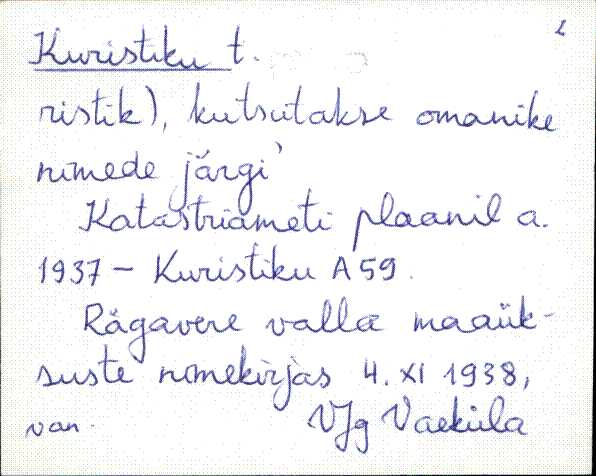 2
Kuristiku t.
ristik), kutsutakse omanike
nimede järgi'
Katastriameti plaanil a.
1937 – Kuristiku A 59.
Rägavere valla maaük-
suste nimekirjas 4. XI 1938,
van. VJg Vaeküla